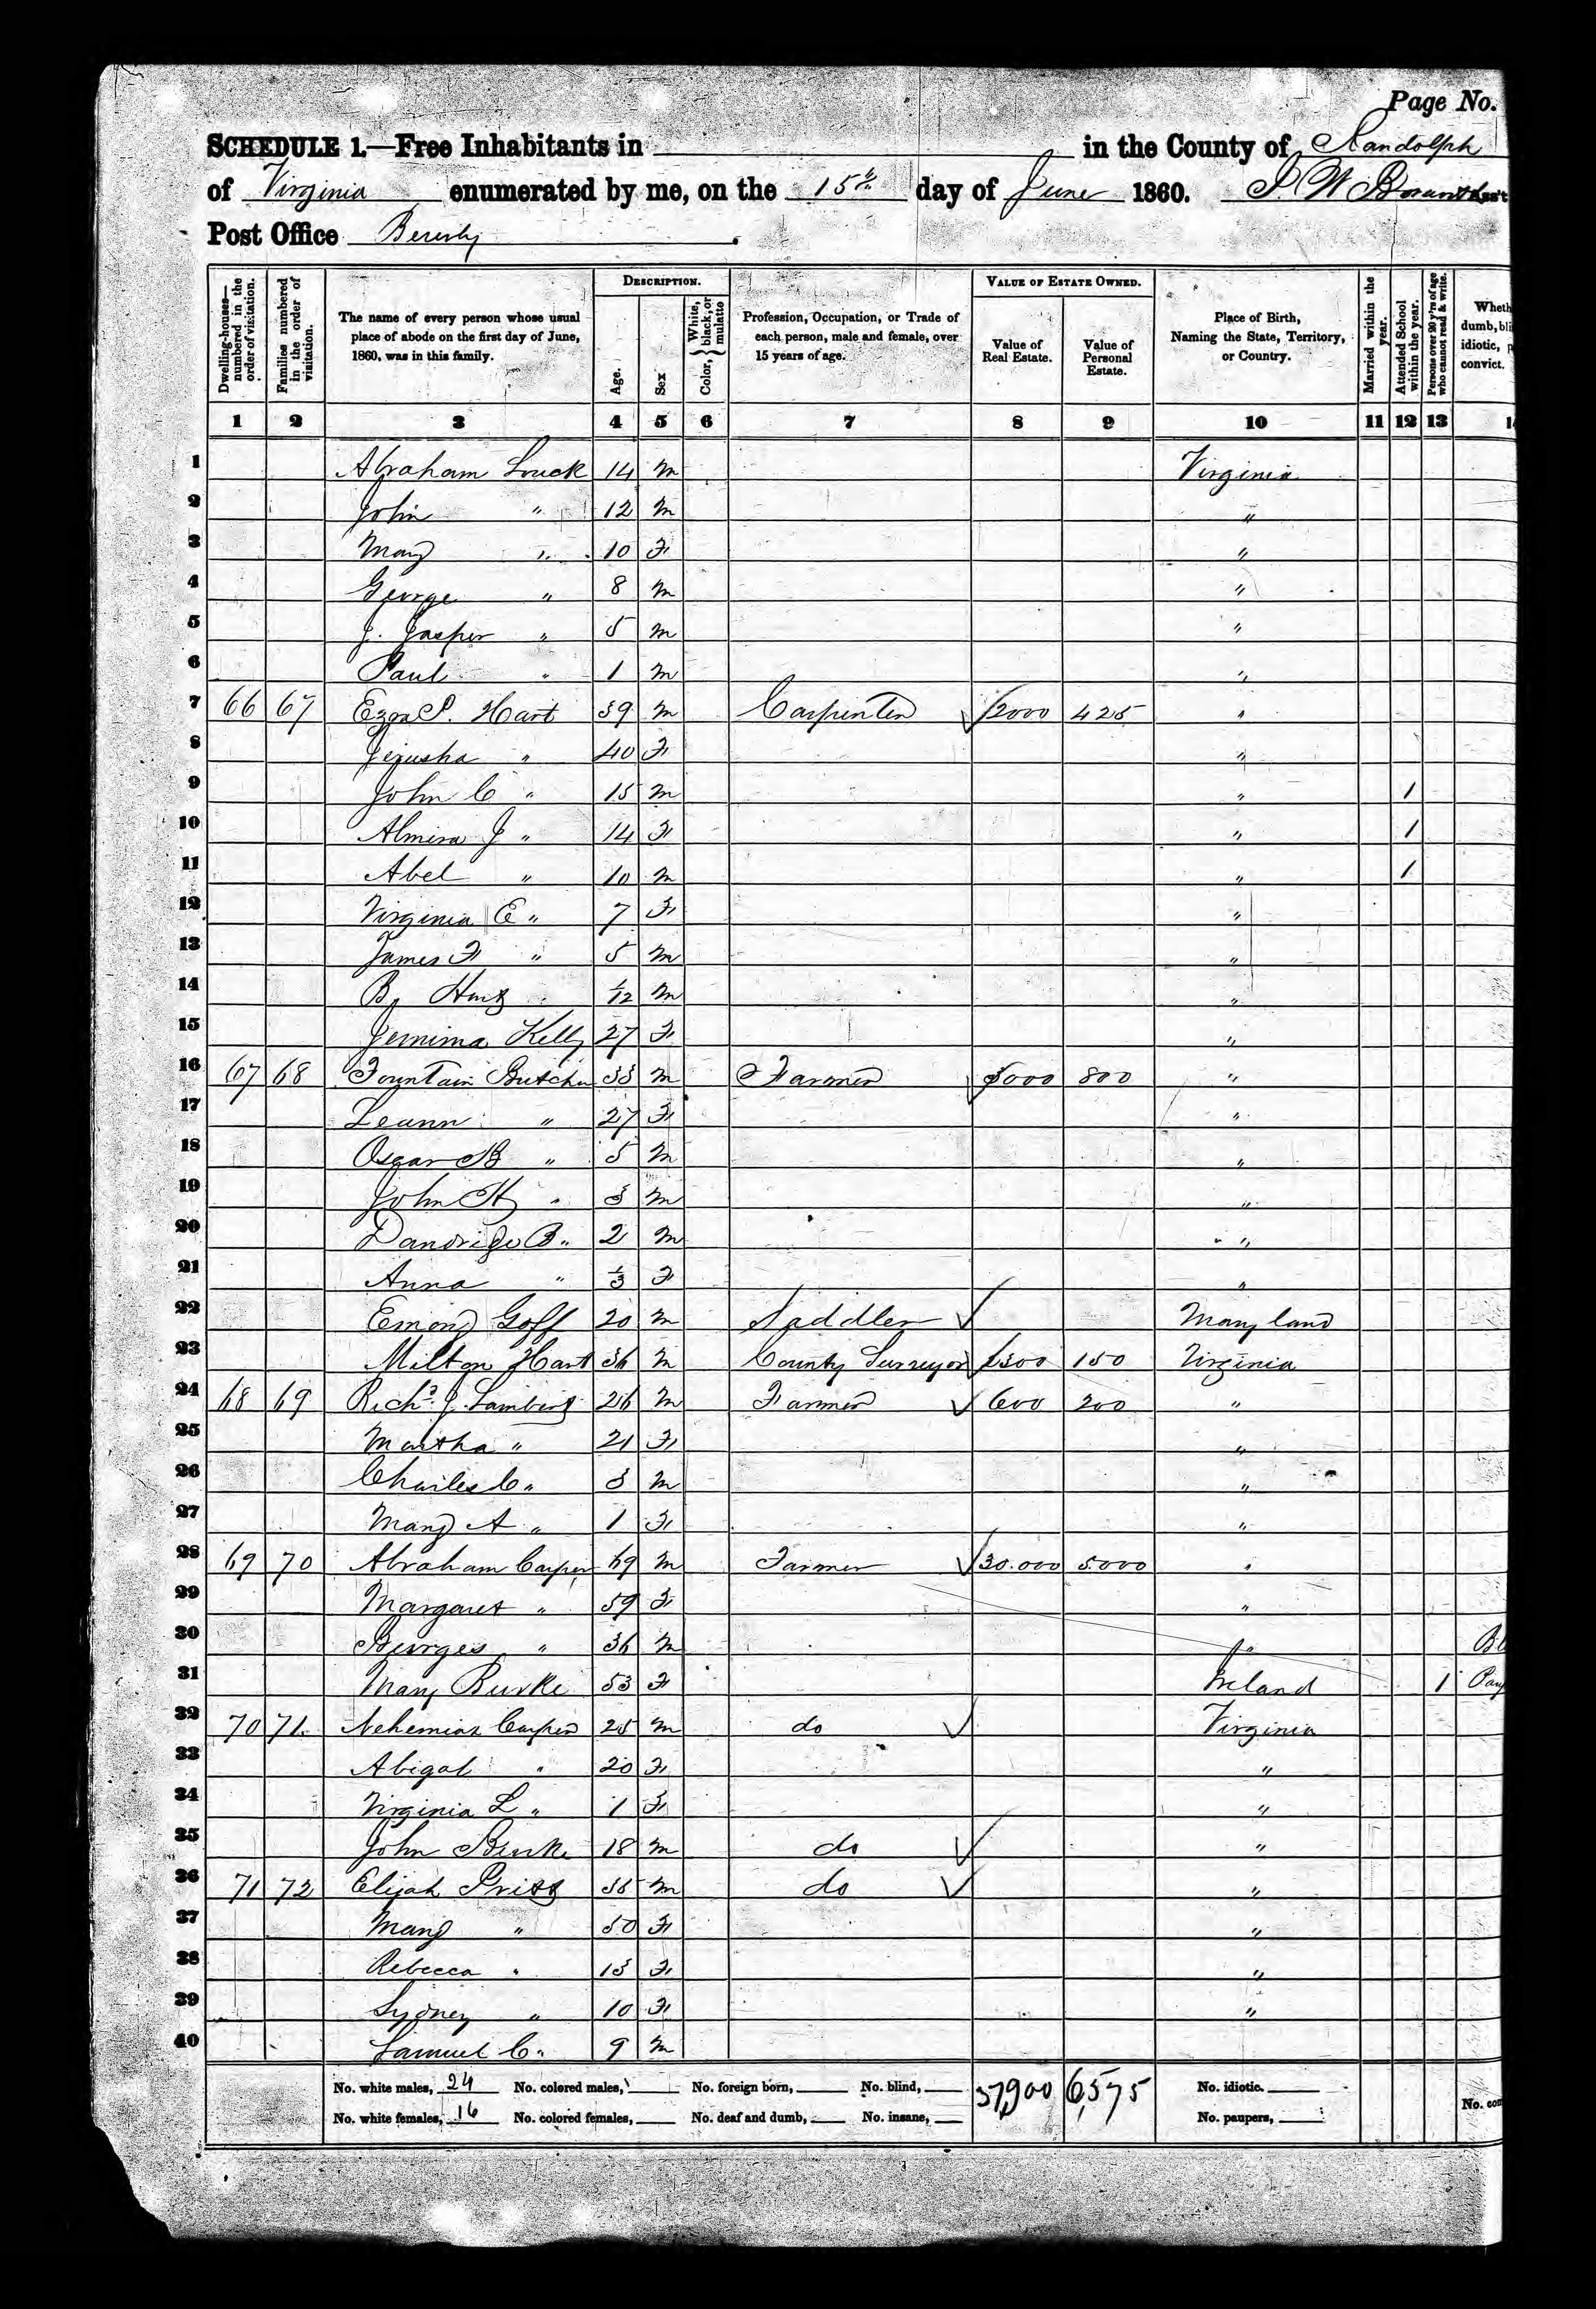 Page No.
SCHEDULE 1.—Free Inhabitants in in the County of Randolph
of Virginia enumerated by me, on the 15th day of June 1860. Ass't
Post Office Beverly.
Dwelling-houses—numbered in the order of visitation. Families numbered in the order of visitation. The name of every person whose usual place of abode on the first day of June, 1860, was in this family. DESCRIPTION. Age. Sex Color, White, black, or mulatto Profession, Occupation, or Trade of each person, male and female, over 15 years of age. VALUE OF ESTATE OWNED. Value of Real Estate. Value of Personal Estate. Place of Birth, Naming the State, Territory, or Country. Married within the year. Attended School within the year. Persons over 20 y'rs of age who cannot read & write. Wheth dumb, bli idiotic, p convict.
1 2 3 4 5 6 7 8 9 10 11 12 13
1 Abraham Louck 14 m Virginia
2 John " 12 m "
3 Mary " 10 F "
4 George " 8 m "
5 J. Jasper " 5 m "
6 Paul " 1 m "
7 66 67 Ezra P. Hart 39 m Carpenter 2000 425 "
8 Jerusha " 40 F "
9 John C " 15 m " 1
10 Almira J " 14 F " 1
11 Abel " 10 m " 1
12 Virginia E " 7 F "
13 James F " 5 m "
14 B. 1/12 m "
15 Jemima Kelly 27 F "
16 67 68 Fountain Butcher 33 m Farmer 3000 800 "
17 Leann " 27 F "
18 Oscar " 5 m "
19 John H " 3 m "
20 Dandrige B " 2 m "
21 Anna " 1/3 F "
22 Goff 20 m Saddler Maryland
23 Milton Hart 36 m County Surveyor 2300 150 Virginia
24 68 69 Richd. J. Lambert 26 m Farmer 600 200 "
25 Martha " 21 F "
26 Charles C " 3 m "
27 Mary A " 1 F "
28 69 70 Abraham Casper 69 m Farmer 30.000 5.000 "
29 Margaret " 59 F "
30 " 36 m " Bl
31 Mary Burke 53 F Ireland 1
32 70 71. Nehemiah 25 m do Virginia
33 Abigal " 20 F "
34 Virginia L " 1 F "
35 John Burke 18 m do "
36 71 72 Elijah Pritt m do "
37 Mary " 50 F "
38 Rebecca " 13 F "
39 Sydney " 10 F "
40 Samuel C " 9 m
No. white males, 24 No. colored males, No. foreign born, No. blind, 37,900 6,575 No. idiotic.
No. white females, 16 No. colored females, No. deaf and dumb, No. insane, No. paupers, No. con